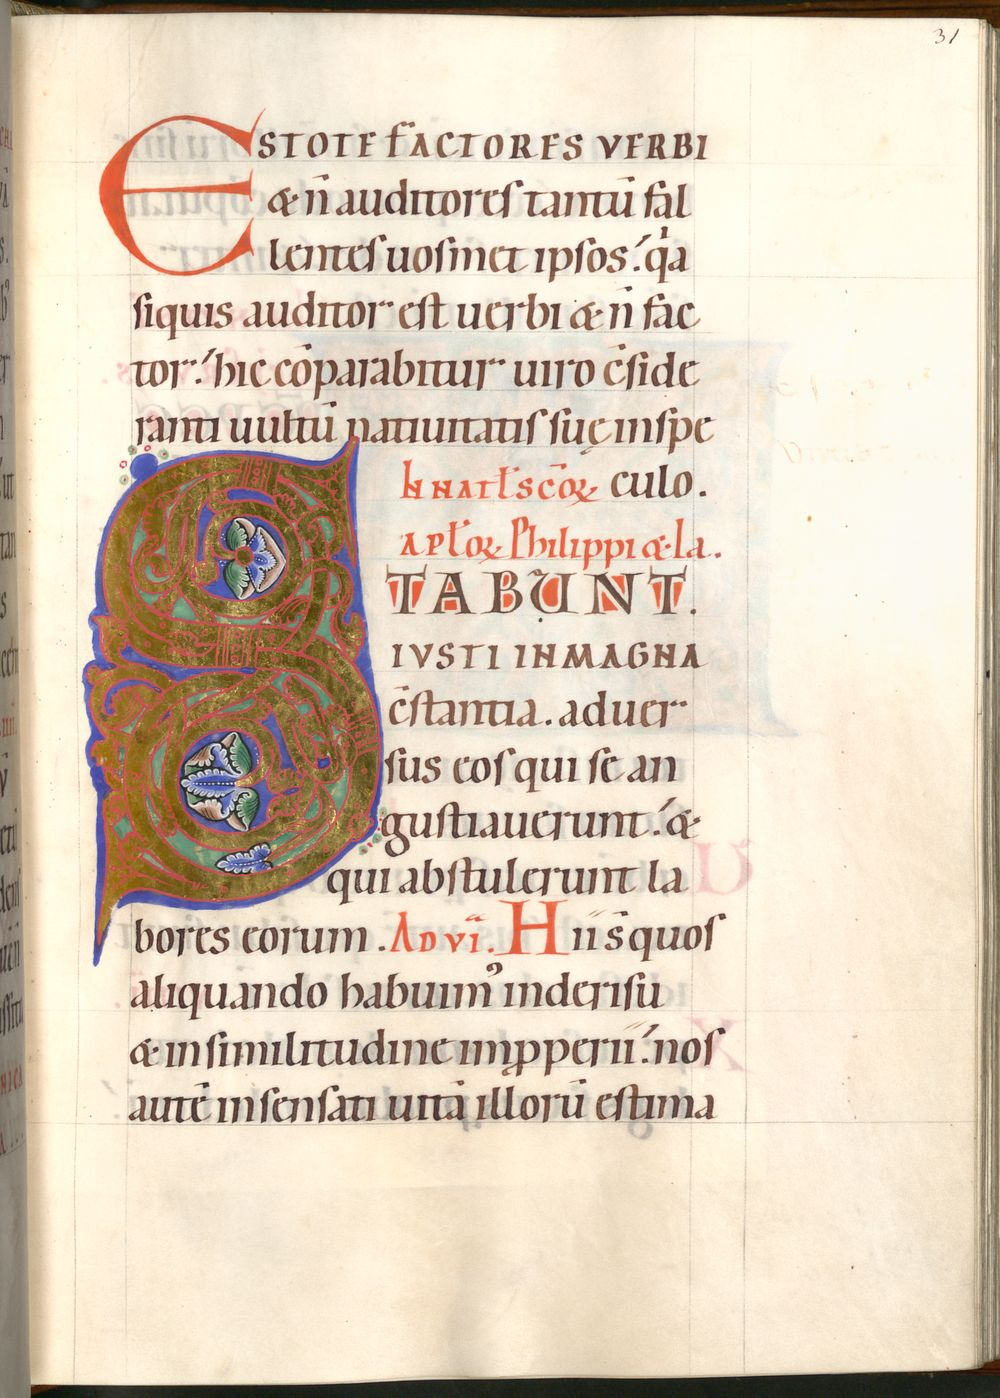 31
ESTOTE FACTORES VERBI
& n̄ auditores tantū fal
lentes uosmet ipsos. qa
siquis auditor est uerbi & n̄ fac
tor. hic cōparabitur uiro c̄side
ranti uultū natiuitatis suę inspe
culo.
In nat̄ scōꝝ
apl̄oꝝ Philippi & Ia.
STABUNT.
IUSTI IN MAGNA
c̄stantia. aduer
sus eos qui se an
gustiauerunt. &
qui abstulerunt la
bores eorum. Ad vi. Hii s̄ quos
aliquando habuimꝰ inderisū
& insimilitudine imꝓperii. nos
autē insensati uitā illorū estima